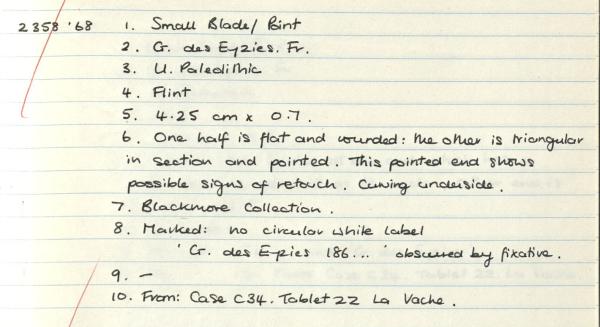 2358 '68 1. Small Blade/Point
2. Gr. des Eyzies. Fr.
3. U. Paleolithic
4. Flint
5. 4.25 cm x 0.7.
6. One half is flat and rounded: the other is triangular
in section and pointed. This pointed end shows
possible signs of retouch. Curving underside.
7. Blackmore Collection.
8. Marked: no circular white label
'Gr. des Ezies 186...' obscured by fixative.
9. -
10. From: Case C34. Tablet 22 La Vache.